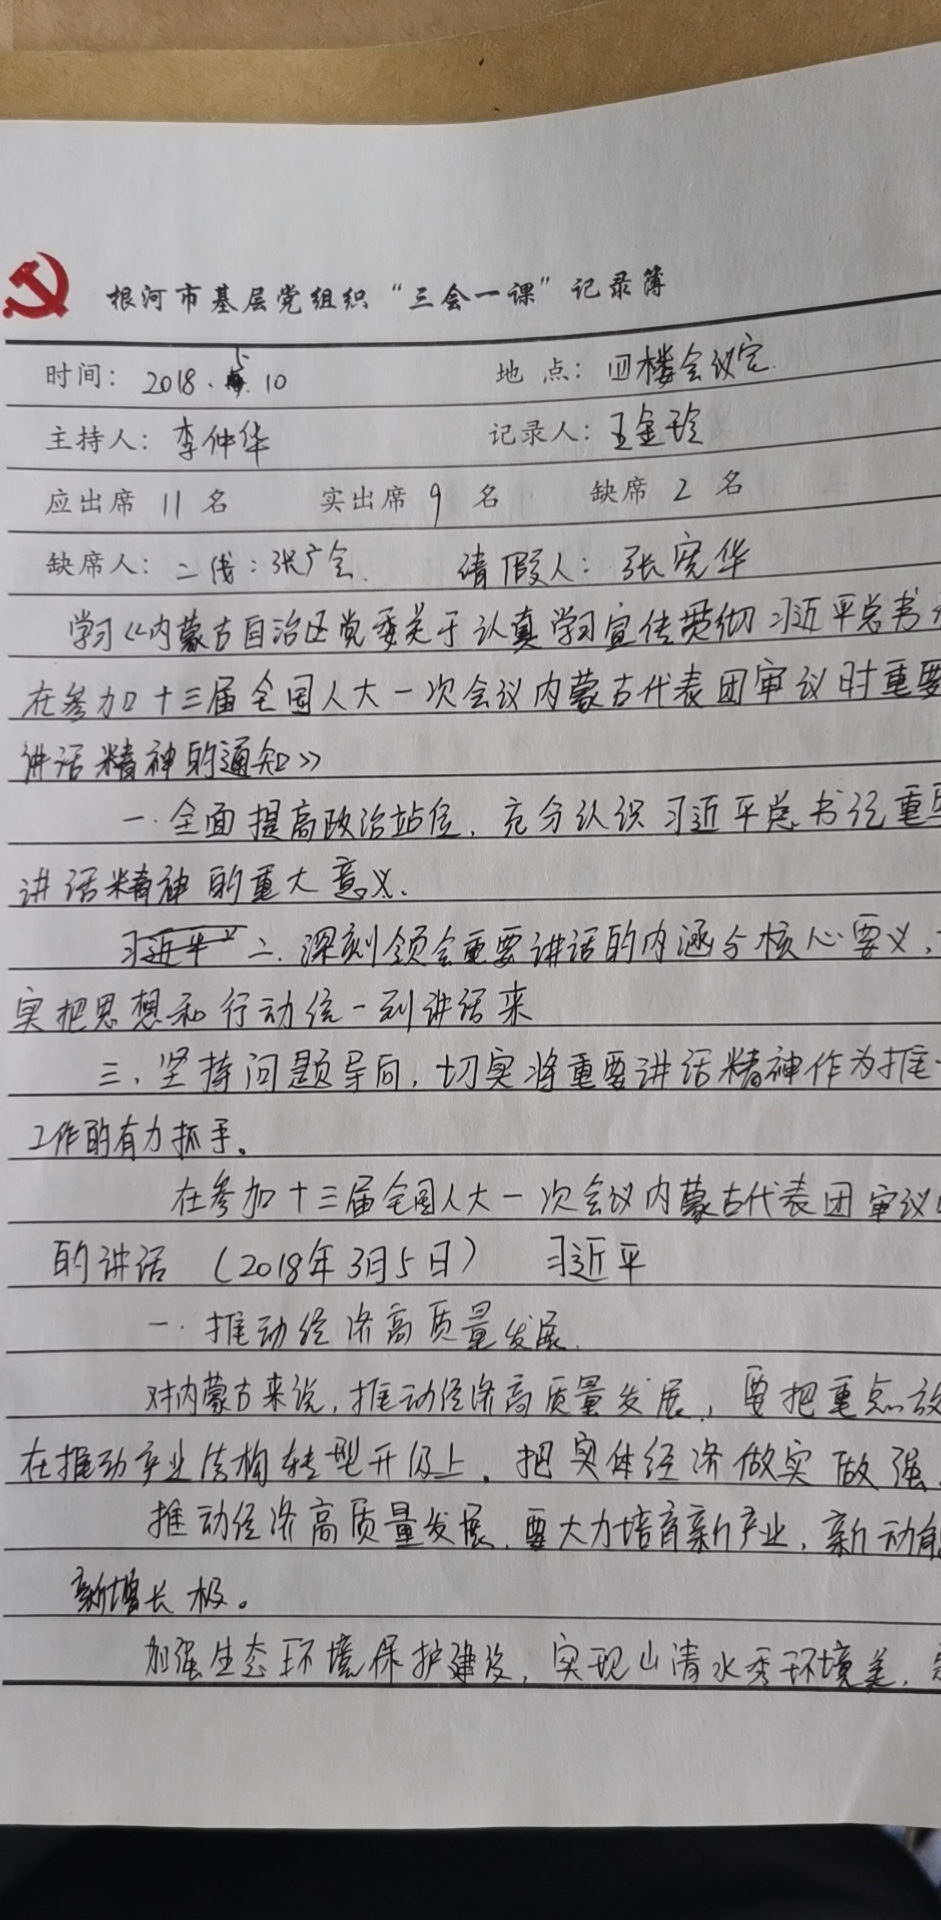 根河市基层党组织“三会一课”记录簿
时间：2018.5.10 地点：四楼会议室
主持人：李仲华 记录人：王金玲
应出席 11 名 实出席 9 名 缺席 2 名
缺席人：二线：张广会. 请假人：张宪华
学习《内蒙古自治区党委关于认真学习宣传贯彻习近平总书
在参加十三届全国人大一次会议内蒙古代表团审议时重要
讲话精神的通知》
一.全面提高政治站位，充分认识习近平总书记重要
讲话精神的重大意义.
习近平 二、深刻领会重要讲话的内涵与核心要义，
实把思想和行动统一到讲话来
三、坚持问题导向，切实将重要讲话精神作为推
工作的有力抓手。
在参加十三届全国人大一次会议内蒙古代表团审议
的讲话（2018年3月5日） 习近平
一.推动经济高质量发展.
对内蒙古来说，推动经济高质量发展，要把重点放
在推动产业结构转型升级上，把实体经济做实做强.
推动经济高质量发展，要大力培育新产业，新动能
新增长极。
加强生态环境保护建设，实现山清水秀环境美，